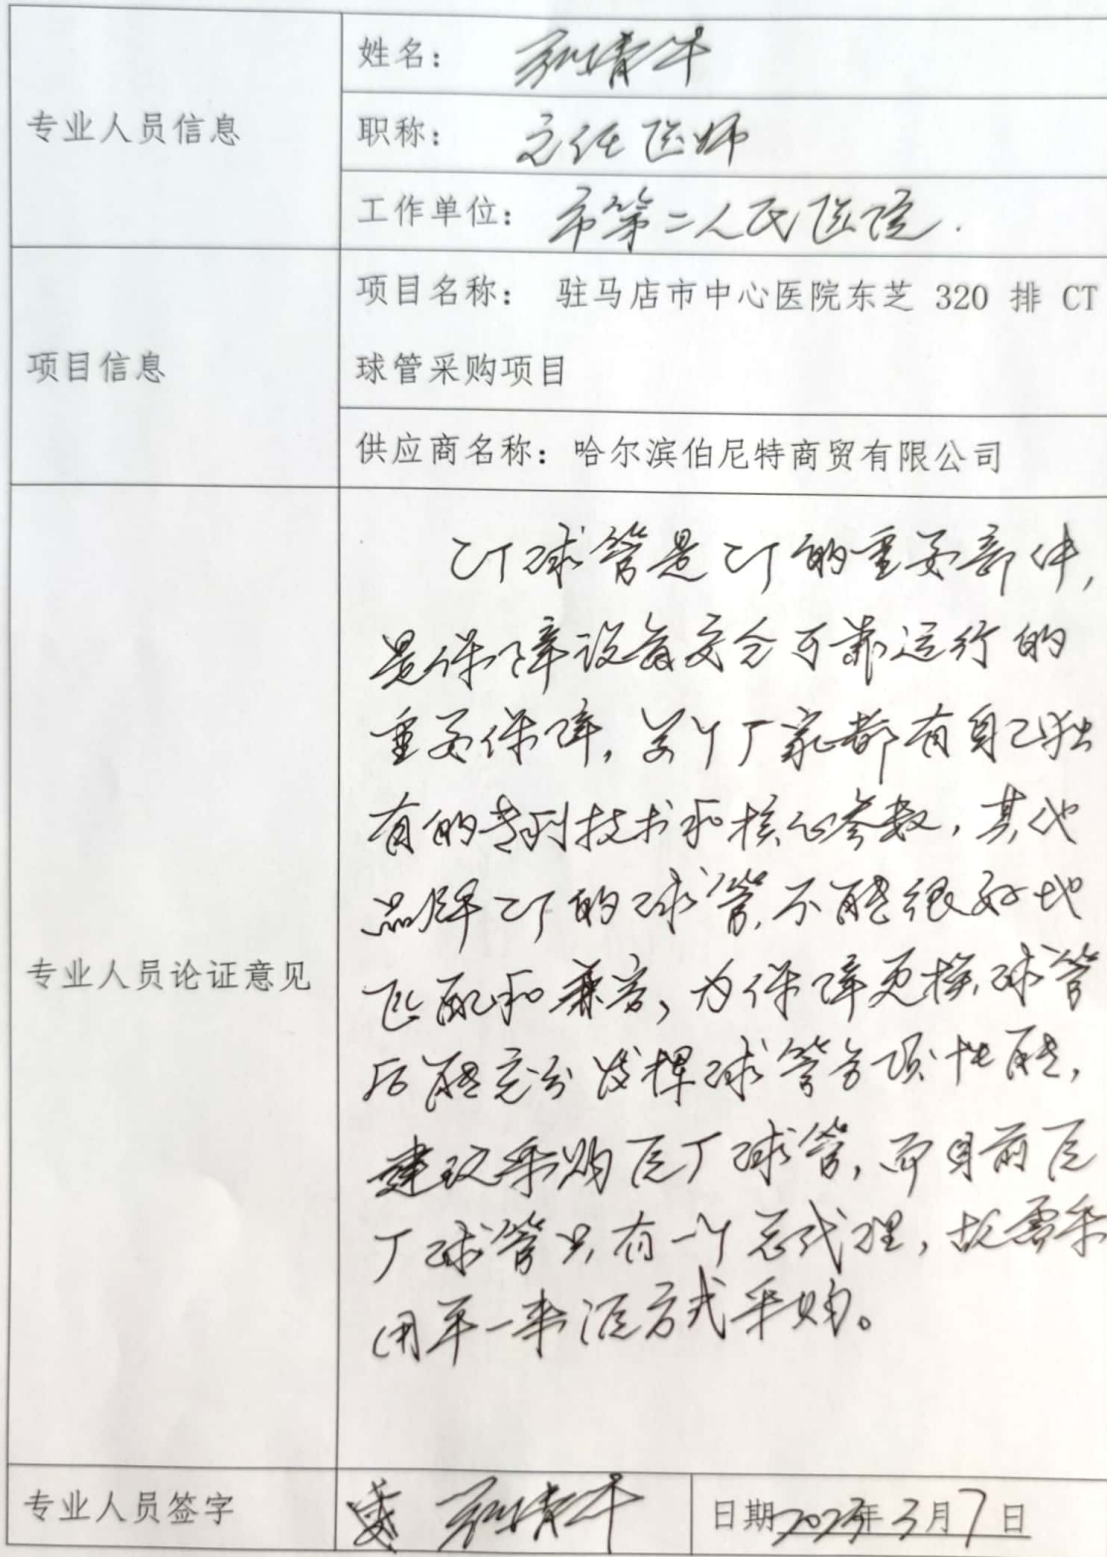 专业人员信息
姓名：
职称： 主任医师
工作单位： 市第二人民医院.
项目信息
项目名称： 驻马店市中心医院东芝 320 排 CT
球管采购项目
供应商名称：哈尔滨伯尼特商贸有限公司
专业人员论证意见
CT球管是CT的重要部件,
是保障设备安全可靠运行的
重要保障, 每个厂家都有自己独
有的专利技术和核心参数, 其他
品牌CT的球管, 不能很好地
匹配和兼容, 为保障更换球管
后能充分发挥球管各项性能,
建议采购原厂球管, 而目前原
厂球管只有一个总代理, 故需采
用单一来源方式采购。
专业人员签字
日期 2023年3月7日